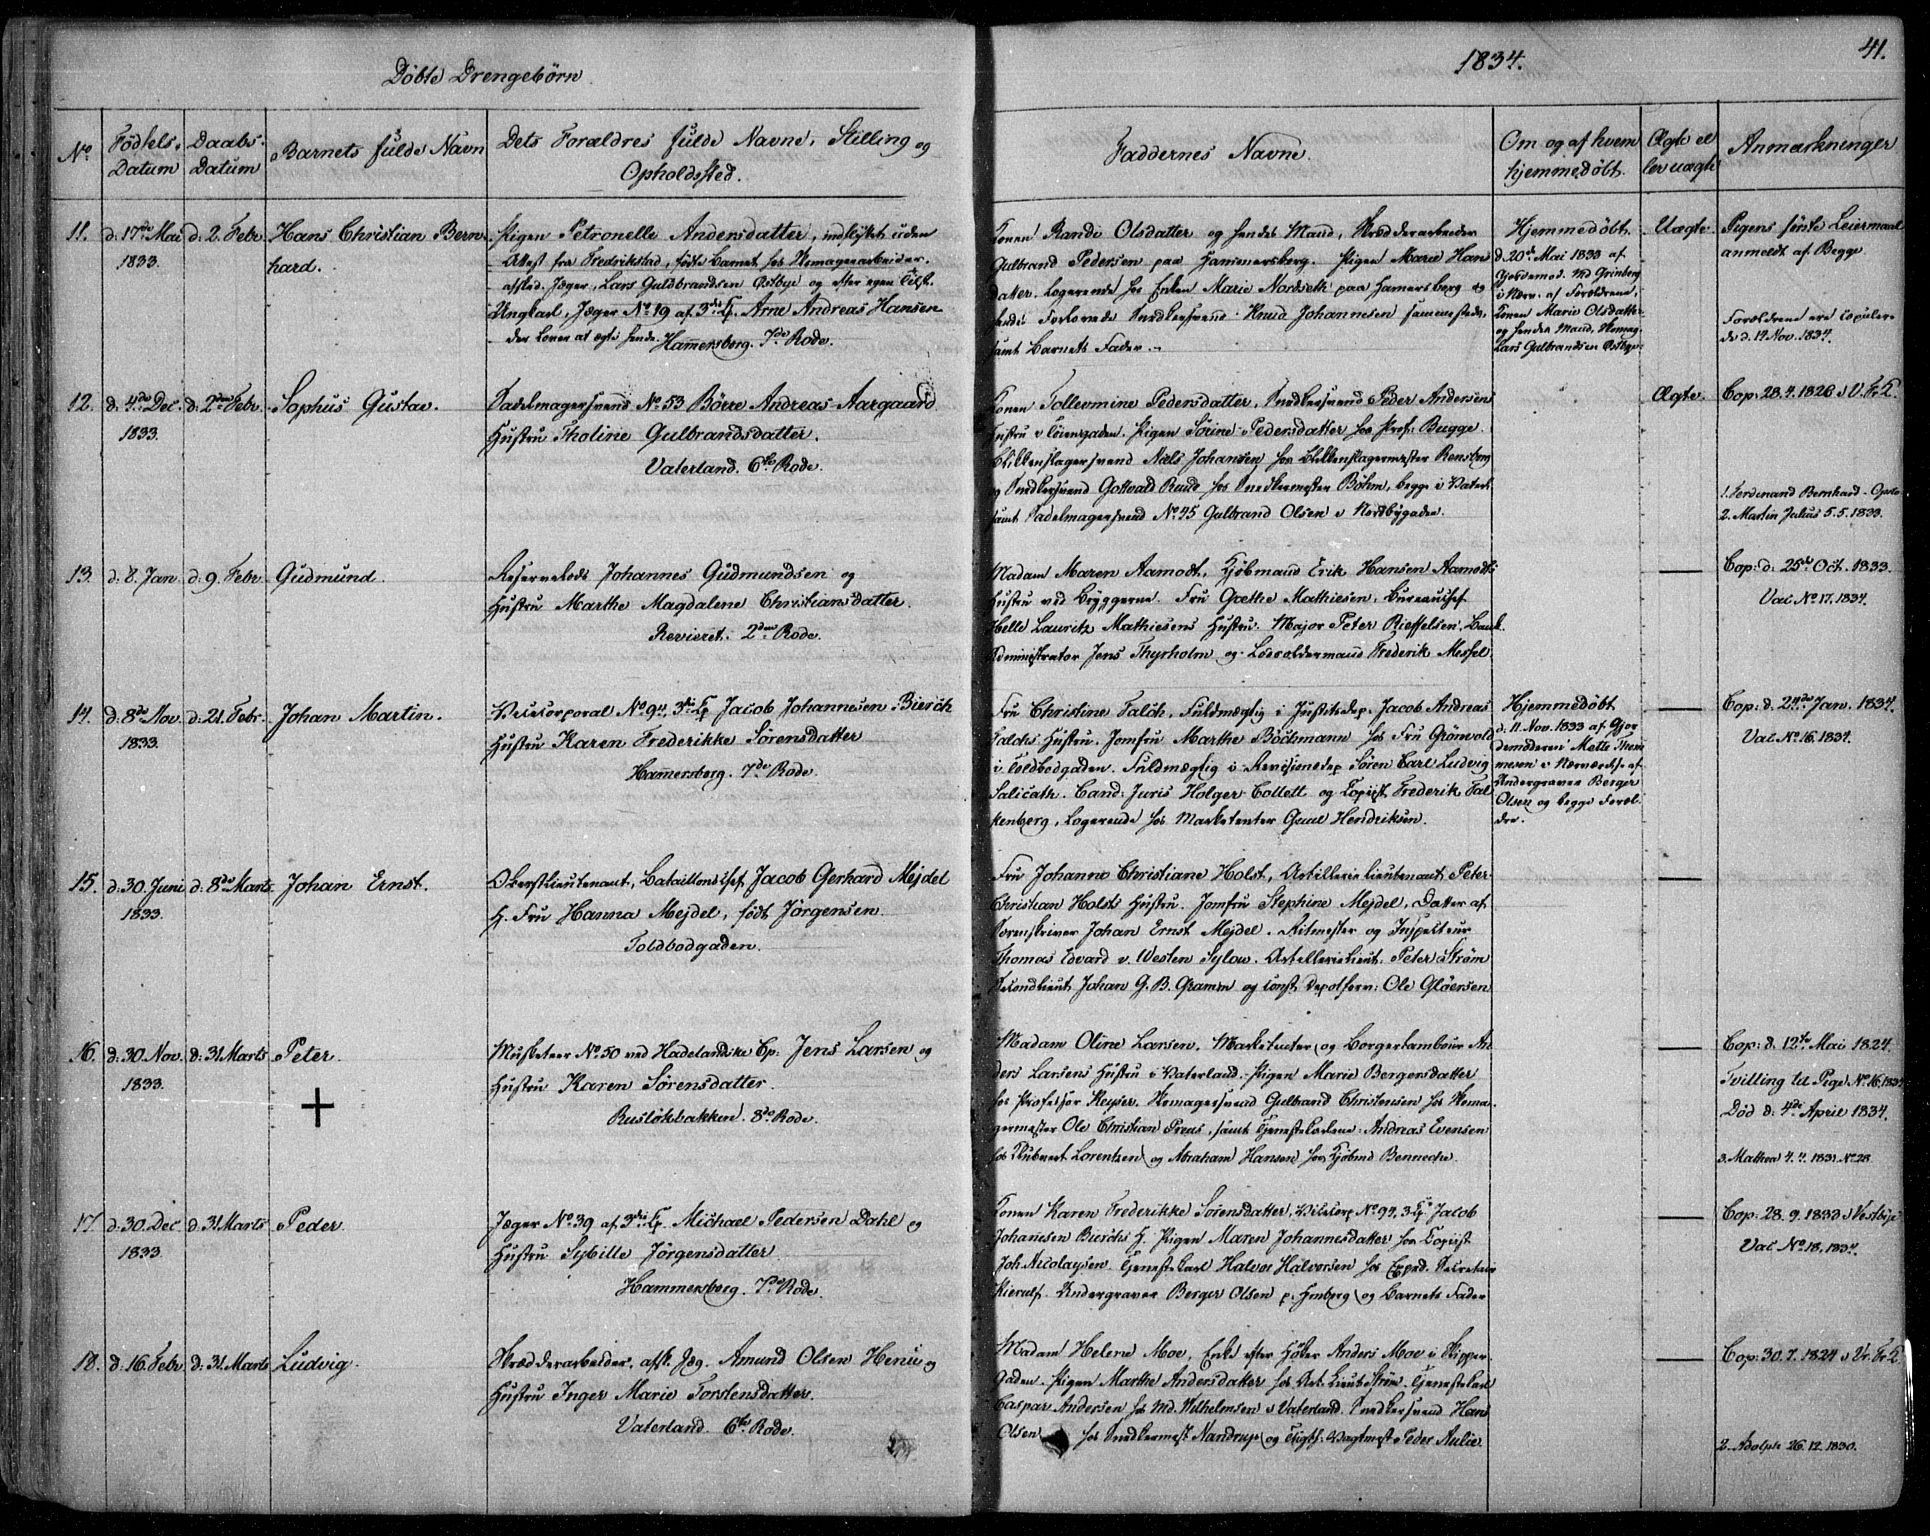 Døbte Drengebørn
1834.
41.
No.
Fødsels-
Datum
Daabs-
Datum
Barnets fulde Navn
Dets Forældres fulde Navne, Stilling og
Opholdssted.
Faddernes Navne
Om og af hvem
hjemmedøbt.
Ægte el
ler uægte
Anmærkninger
11. d. 17de Mai d. 2. Febr. Hans Christian Bern-
1833. hard.
Pigen Petronelle Andersdatter, indflyttet uden
Attest fra Fredrikstad, fødte Barnet hos
afsked. Jæger, Lars Guldbrandsen Østbye og efter egen Tilst.
Ungkarl, Jæger No 19 af 3die Cp. Arne Andreas Hansen
der lover at ægte hende. Hammersborg. 7de Rode.
Konen Randi Olsdatter og hendes Mand,
Gulbrand Pedersen paa Hammersborg. Pigen Marie Han
datter, Logerende hos Enken Marie Nordseth paa Hamersborg og
hendes Forlovede Snedkersvend Knud Johannesen sammesteds,
samt Barnets Fader.
Hjemmedøbt
d. 20de Mai 1833 af
Gjordemod. Md Grinberg
i Nærv. af Forældrene,
Konen Marie Olsdatter
og hendes Mand,
Lars Gulbrandsen Østbye.
Uægte.
Pigens første Leiermaal
anmeldt af Begge
Forældrene ere copulere
de d. 19 Nov. 1834.
12. d. 4de Dec. d. 2den Febr. Sophus Gustav.
1833.
Sadelmagersvend No 53 Börre Andreas Aargaard
Hustru Tholine Gulbrandsdatter.
Vaterland. 6te Rode.
Konen Tollevmine Pedersdatter, Snedkersvend Peder Andersen
Hustru i Pigen Sörine Pedersdatter hos Prof. Bugge.
Blikkenslagersvend Niels Johansen hos Blikkenslagermester Rensberg
og Snedkersvend Gottvald Ruud hos Snedkermester Böhm, begge i Vaterl.
samt Sadelmagersvend No 45 Gulbrand Olsen i Nordbygaden.
Ægte.
Cop. 28.4.1826 i V. Fr. K.
1. Ferdinand Bernhard
2. Martin Julius 5.5.1833.
13. d. 8. Jan. d. 9. Febr. Gudmund.
Johannes Gudmundsen og
Hustru Marthe Magdalene Christiansdatter.
Revieret. 2den Rode.
Madam Maren Aamodt, Kjøbmand Erik Hansen Aamodts
Hustru ved Bryggerne. Fru Grethe Mathiesen, Bureauchef
Helle Lauritz Mathiesens Hustru. Major Peter Bieffelsen, Bank
Administrator Jens Thyrholm og Frederik Messel.
Cop: d. 25de Oct. 1833.
Vac No 17. 1834.
14. d. 8de Nov. d. 21. Febr. Johan Martin.
1833.
Vicecorporal No 94, 3die Cp Jacob Johannesen Bierch
Hustru Karen Frederikke Sørensdatter
Hammersborg. 7de Rode.
Fru Christine Falch, Fuldmægtig i Justitsdep. Jacob Andreas
Falchs Hustru. Jomfru Marthe Böchmann hos Fru Grönvold
i Toldbodgaden. Fuldmægtig i Revisionsdep Søren Carl Ludvig
Salicath. Cand: Juris Holger Collett og Copiist Frederik Fal
kenberg, Logerende hos Marketenter Gaul Hendriksen.
Hjemmedøbt
d. 11. Nov. 1833 af Gjor
demoderen Mette Thom
mesen i Nærværelse af
Undergraver Berger
Olsen og begge Foræl
dre.
Cop: d. 24de Jan. 1834.
Vac No 16. 1834.
15. d. 30. Juni d. 8de Marts Johan Ernst.
1833.
Oberstlieutenant, Bataillonschef Jacob Gerhard Mejdel
H. Fru Hanna Mejdel, født Jörgensen.
Toldbodgaden.
Fru Johanne Christiane Holst, Artillerielieutenant Peter
Christian Holsts Hustru. Jomfru Stephine Mejdel, Datter af
Sorenskriver Johan Ernst Mejdel. Ritmester og Inspecteur
Thomas Edvard v. Westen Sylow. Artillerielieut. Peter Strøm
Secondlieut Johan G. B. Gramm og const. Depotforv: Ole Glöersen
16. d. 30 Nov. d. 31 Marts Peter.
1833.
Musketeer No 50 ved Hadelandske Cp: Jens Larsen og
Hustru Karen Sörensdatter.
Busløkbakken. 8de Rode.
Madam Oline Larsen, Marketenter og Borgertambour An
ders Larsens Hustru i Vaterland. Pigen Marie Bergersdatter
hos Professor Keyser. Skomagersvend Gulbrand Christensen hos Skoma-
germester Ole Christian Preus, samt Tjenestekarlene Andreas Evensen
hos Lorentzen og Abraham Hansen hos Kjøbmd Benneche.
Cop: d. 12te Mai 1824.
Tvilling til Pige No 16. 1834
Død d. 4de April 1834.
3. Mathea 4.4.1831 No 28
17. d. 30. Dec. d. 31 Marts Peder.
1833
Jæger No 39 af 3die Cp. Michael Pedersen Dahl og
Hustru Sybille Jørgensdatter
Hammersborg. 7de Rode.
Konen Karen Frederikke Sørensdatter, Vicecorp No 94, 3 Cp. Jacob
Johannesen Bierchs H. Pigen Maren Johannesdatter hos Copiist
Joh. Nicolaysen. Tjenestekarl Halvor Halvorsen hos Exped. Secretair
Kierulf. Undergraver Berger Olsen p. Hmberg og Barnets Fader
Cop: 28.9.1833 i Vestbye
Vac No 18. 1834.
18. d. 16. Febr. d. 31. Marts Ludvig.
afsk. Jæg. Amund Olsen Henie og
Hustru Inger Marie Torstensdatter.
Vaterland. 6te Rode.
Madam Helene Moe, Enke efter Höker Anders Moe i Skipper
Gaden. Pigen Marthe Andersdatter hos Art. Lieut Strøm. Tjenestekarl
Caspar Andersen hos Md. Wilhelmsen i Vaterland. Snedkersvend Hans
Olsen hos Snedkermest. Nandrup og Vagtmest. Peder Aulie.
Cop: 30.7.1824 i Vr. Fr. K.
2. Adolph 26.12.1830.